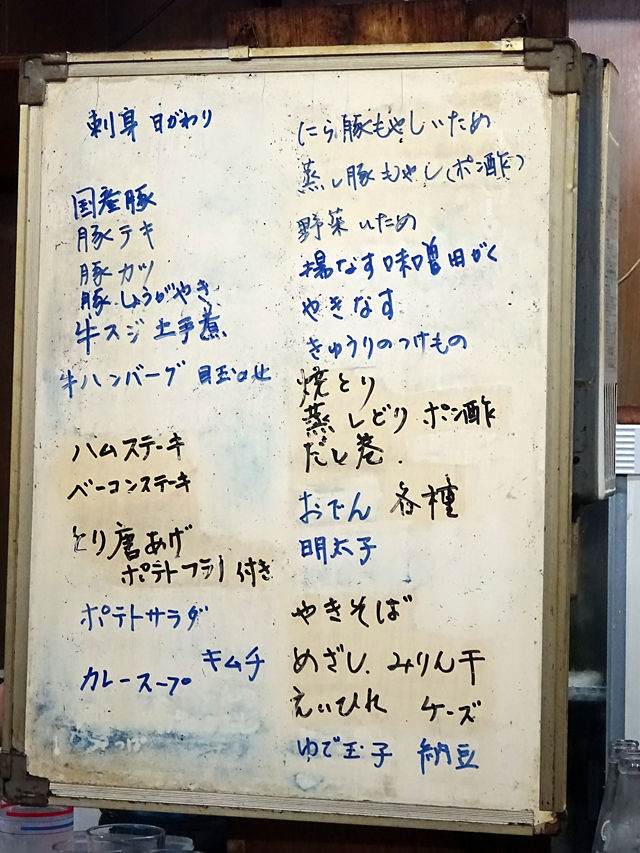 刺身 日がわり
国産豚
豚テキ
豚カツ
豚しょうがやき
牛スジ土手煮
牛ハンバーグ 目玉のせ
ハムステーキ
ベーコンステーキ
とり唐あげ
ポテトフライ付き
ポテトサラダ
キムチ
カレースープ
にら豚もやしいため
蒸し豚もやし(ポン酢)
野菜いため
揚なす味噌田がく
やきなす
きゅうりのつけもの
焼とり
蒸しどりポン酢
だし巻.
おでん 各種
明太子
やきそば
めざし. みりん干
えいひれ ケーズ
ゆで玉子 納豆